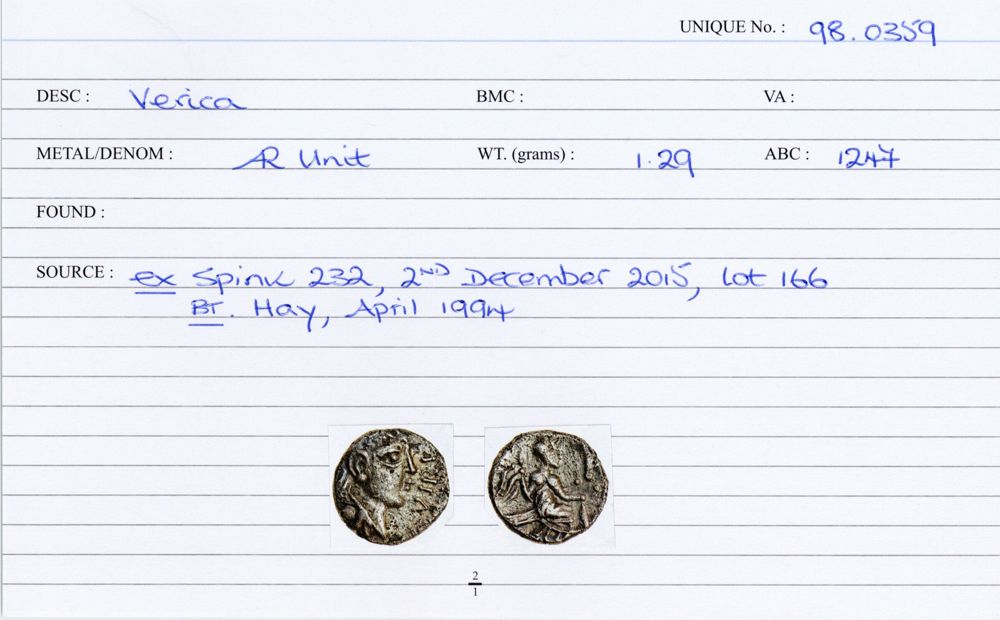 UNIQUE No. : 98.0359
DESC : Verica BMC : VA :
METAL/DENOM : AR Unit WT. (grams) : 1.29 ABC : 1247
FOUND :
SOURCE : ex Spink 232, 2ND December 2015, Lot 166
BT. Hay, April 1994
2
1